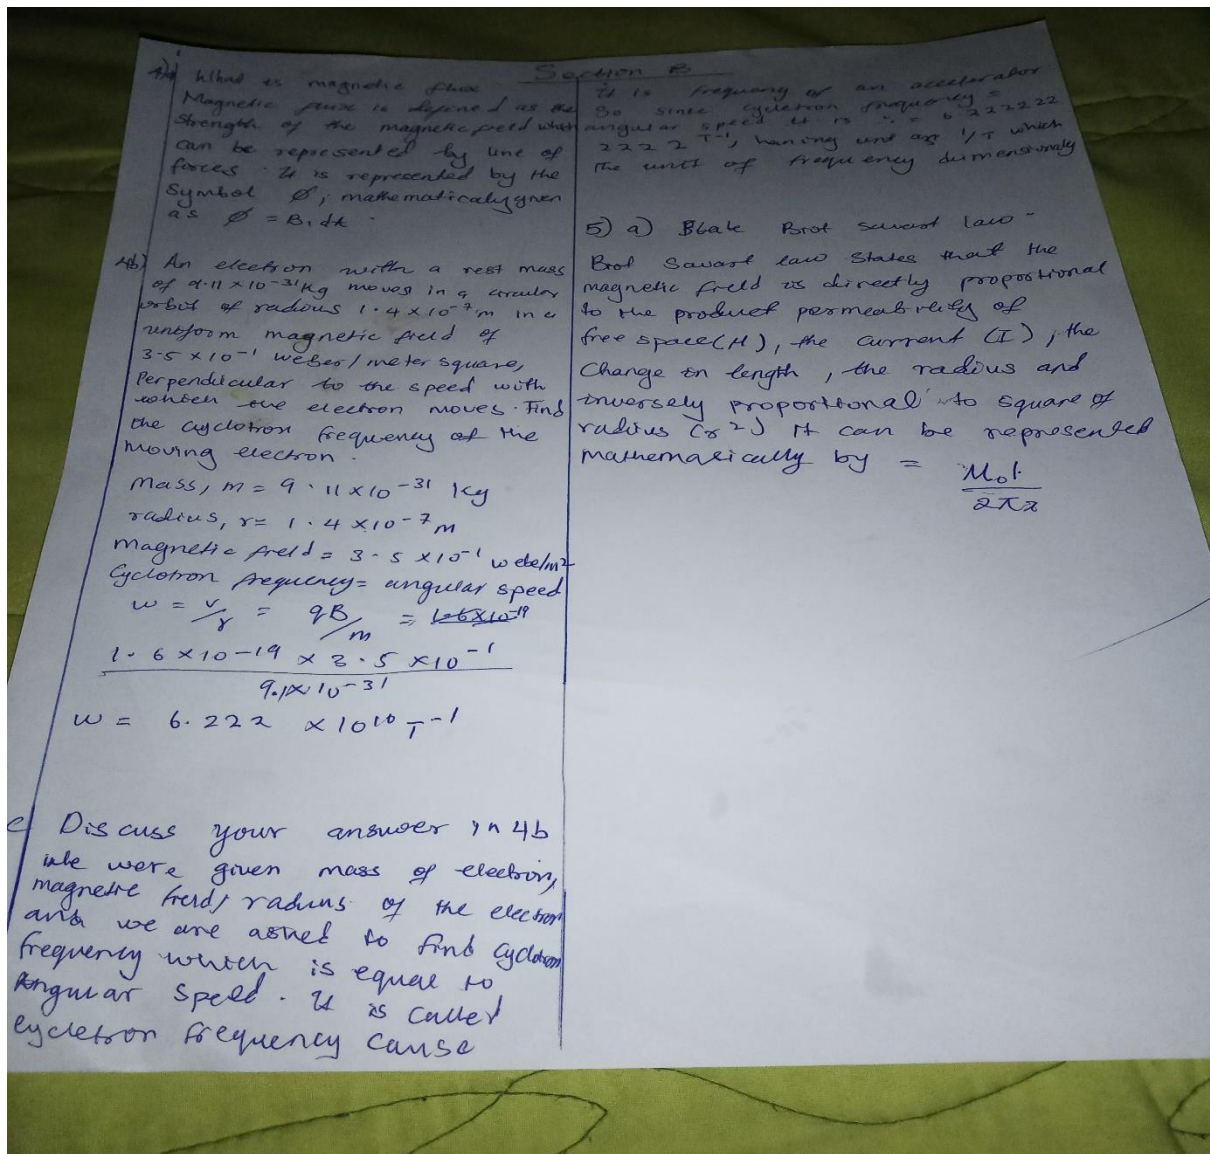 Section B
4)a) What is magnetic flux
Magnetic flux is defined as the
strength of the magnetic field which
can be represented by line of
forces. It is represented by the
Symbol Ø, mathematicaly given
as Ø = B. dA.
4b) An electron with a rest mass
of 9.11 x 10-31kg moves in a circular
orbit of radious 1.4 x 10-7m in a
uniform magnetic field of
3.5 x 10-1 weber/meter square,
Perpendicular to the speed with
which the electron moves. Find
the cyclotron frequency of the
moving electron.
Mass, m = 9.11 x 10-31 kg
radius, r = 1.4 x 10-7 m
Magnetic field = 3.5 x 10-1 webe/m2
Cyclotron frequency = angular speed
w = v/r = qB/m = 1.6x10-19
1.6 x 10-19 x 3.5 x 10-1
9.1x 10-31
w = 6.222 x 1010 T-1
c Discuss your answer in 4b
we were given mass of electron,
magnetic field, radius of the electron
and we are asked to find cyclotron
frequency which is equal to
Angular Speed. It is called
cycletron frequency cause
it is frequency of an accelerator
So since cycletron frequency =
angular speed it is = 6.222222
2222 T-1, having unit as 1/T which
the unit of frequency dimensionaly
5) a) State Biot Savart law -
Biot Savart law States that the
magnetic field is directly proportional
to the product permeability of
free space(M), the current (I), the
Change in length, the radius and
inversely proportional to square of
radius (r2) It can be represented
Mathematically by = MoI
2πr